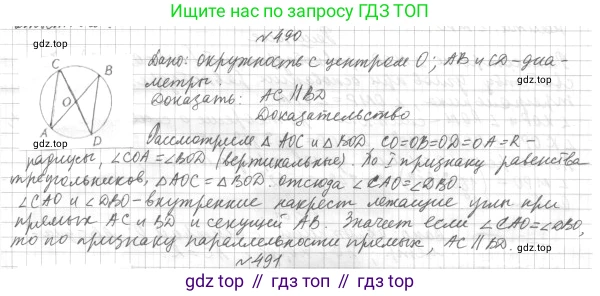 Ищите нас по запросу ГДЗ ТОП
gdz.top
gdz.top
№490
C
B
O
A
D
gdz.top
Дано: окружность с центром O; AB и CD-диа-
метры.
Доказать: AC || BD
Доказательство
Рассмотрим △ AOC и △ BOD. CO=OB=OD=OA=R -
радиусы, ∠COA=∠BOD (вертикальные). По I признаку равенства
треугольников, △AOC=△BOD. отсюда ∠CAO=∠DBO.
∠CAO и ∠DBO - внутренние накрест лежащие углы при
прямых AC и BD и секущей AB. Значит если ∠CAO=∠DBO,
то по признаку параллельности прямых, AC || BD.
gdz.top
gdz.top
№491
gdz.top // гдз.топ // gdz.top